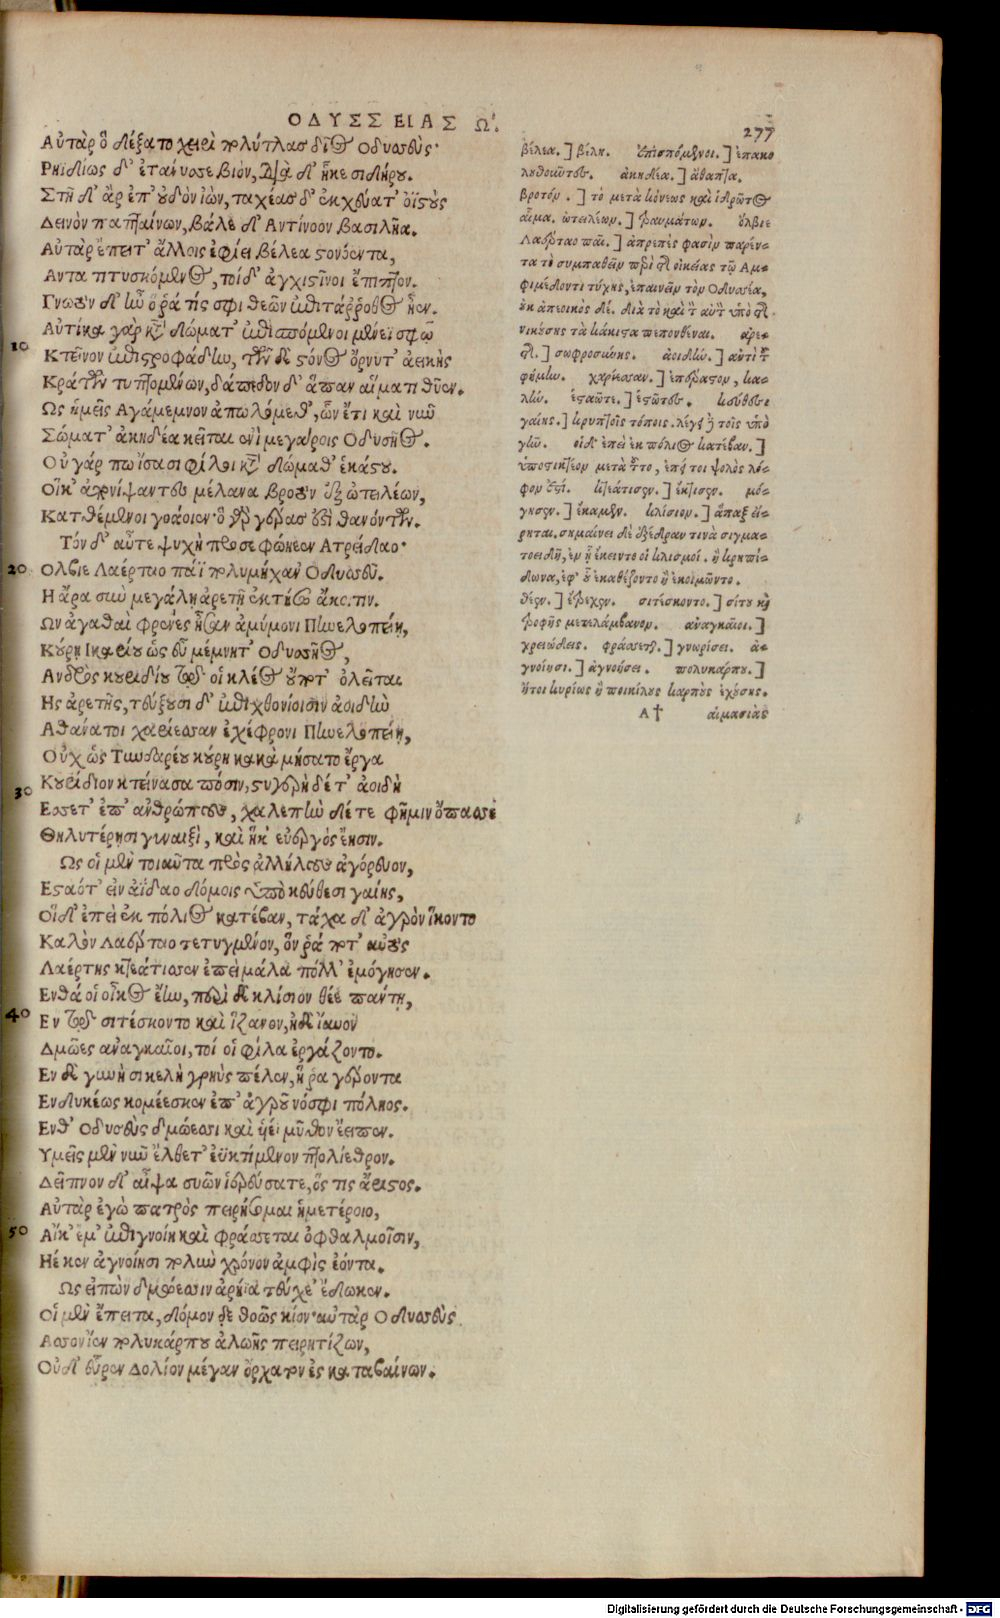 ΟΔΥΣΣΕΙΑΣ Ω.
277
Αὐτὰρ ὃ δέξατο χειρὶ πολύτλας δῖος Οδυσσεὺς·
Ρηϊδίως δ' ἐτανυσσε βιὸν, διὰ δ' ἧκε σιδήρου.
Στῆ δ' ἄρ ἐπ' οὐδὸν ἰὼν, ταχέας δ' ἐκχεύατ' ὀϊστοὺς
Δεινὸν παπταίνων, βάλε δ' Αντίνοον βασιλῆα.
Αὐτὰρ ἔπειτ' ἄλλοις ἐφίει βέλεα στονόεντα,
Αντα τιτυσκόμενος, τοὶ δ' ἀγχιστῖνοι ἔπιπτον.
Γνωτὸν δ' ἦν ὅ ῥά τίς σφι θεῶν ἐπιτάῤῥοθος ἦεν.
Αὐτίκα γὰρ κατὰ δώματ' ἐπισπόμενοι μένεϊ σφῷ
10 Κτεῖνον ἐπιστροφάδην, τῶν δὲ στόνος ὄρνυτ' ἀεικὴς
Κράτων τυπτομένων, δάπεδον δ' ἅπαν αἵματι θῦεν.
Ως ἡμεῖς Αγάμεμνον ἀπωλόμεθ', ὧν ἔτι καὶ νῦν
Σώματ' ἀκηδέα κεῖται ἐνὶ μεγάροις Οδυσῆος.
Οὐ γάρ πω ἴσασι φίλοι κατὰ δώμαθ' ἑκάστου.
Οἵ κ' ἀπονίψαντες μέλανα βρότον ἐξ ὠτειλέων,
Κατθέμενοι γοάοιεν· ὃ γὰρ γέρας ἐστὶ θανόντων.
Τὸν δ' αὖτε ψυχὴ προσεφώνεεν Ατρείδαο·
20 Ολβιε Λαέρταο πάϊ πολυμήχαν' Οδυσσεῦ.
Η ἄρα σὺν μεγάλῃ ἀρετῇ ἐκτήσω ἄκοιτιν.
Ων ἀγαθαὶ φρένες ἦσαν ἀμύμονι Πηνελοπείῃ,
Κούρῃ Ικαρίου ὡς εὖ μέμνητ' Οδυσσῆος,
Ανδρὸς κουριδίου τῷ οἱ κλέος οὔποτ' ὀλεῖται
Ης ἀρετῆς, τεύξουσι δ' ἐπιχθονίοισιν ἀοιδὴν
Αθάνατοι χαρίεσσαν ἐχέφρονι Πηνελοπείῃ,
Οὐχ ὡς Τυνδαρέου κούρη κακὰ μήσατο ἔργα
30 Κουρίδιον κτείνασα πόσιν, στυγερὴ δέ τ' ἀοιδὴ
Εσσετ' ἐπ' ἀνθρώπους, χαλεπὴν δέ τε φῆμιν ὄπασσε
Θηλυτέρῃσι γυναιξὶ, καὶ ἥ κ' εὐεργὸς ἔῃσιν.
Ως οἱ μὲν τοιαῦτα πρὸς ἀλλήλους ἀγόρευον,
Εσταότ' εἰν ἀΐδαο δόμοις ὑπὸ κεύθεσι γαίης,
Οἱ δ' ἐπεὶ ἐκ πόλιος κατέβαν, τάχα δ' ἀγρὸν ἵκοντο
Καλὸν Λαέρταο τετυγμένον, ὅν ῥά ποτ' αὐτὸς
Λαέρτης κτεάτισσεν ἐπεὶ μάλα πόλλ' ἐμόγησεν.
Ενθά οἱ οἶκος ἔην, περὶ δὲ κλίσιον θέε πάντῃ,
40 Εν τῷ σιτέσκοντο καὶ ἵζανον, ἠδὲ ἴαυον
Δμῶες ἀναγκαῖοι, τοί οἱ φίλα ἐργάζοντο.
Εν δὲ γυνὴ σικελὴ γρηῢς πέλεν, ἥ ῥα γέροντα
Ενδυκέως κομέεσκεν ἐπ' ἀγροῦ νόσφι πόληος.
Ενθ' Οδυσεὺς δμώεσσι καὶ υἱέϊ μῦθον ἔειπεν.
Υμεῖς μὲν νῦν ἔλθετ' ἐϋκτίμενον πτολίεθρον.
Δεῖπνον δ' αἶψα συῶν ἱερεύσατε, ὅς τις ἄριστος.
Αὐτὰρ ἐγὼ πατρὸς πειρήσομαι ἡμετέροιο,
50 Αἴ κ' ἔμ' ἐπιγνοίη καὶ φράσσεται ὀφθαλμοῖσιν,
Ηέ κεν ἀγνοίῃσι πολὺν χρόνον ἀμφὶς ἐόντα.
Ως εἰπὼν δμώεσσιν ἀρήϊα τεύχε' ἔδωκεν.
Οἱ μὲν ἔπειτα, δόμον δὲ θοῶς κίον· αὐτὰρ Οδυσσεὺς
Ασσον ἴεν πολυκάρπου ἀλωῆς πειρητίζων,
Οὐδ' εὗρεν Δολίον μέγαν ὄρχατον ἐς καταβαίνων.
βέλεα.] βέλη. ἐπισπόμενοι.] ἐπακο
λουθοῦντες. ἀκηδέα.] ἄθαπτα.
βροτόν.] τὸ μετὰ κόνεως καὶ ἱδρῶτος
αἷμα. ὠτειλέων.] τραυμάτων. ὄλβιε
Λαέρταο πάϊ.] ἀπρεπές φασὶν παρόν-
τα τὸ συμπαθεῖν περὶ τῆς οἰκείας τῷ Αμ-
φιμέδοντι τύχης, ἐπαινεῖν τὸν Οδυσσέα,
οὐκ ἀπεοικὸς δέ. διὰ τὸ καὶ αὐτὸν ὑπὸ τῆς
τὰ κάκιστα πεπονθέναι. ἀρε-
τῆς.] σωφροσύνης. ἀοιδήν.] ἀντὶ τοῦ
φήμην. χαρίεσσαν.] ἐπέραστον, κα-
λήν. ἑσταῶτε.] ἑστῶτες. κεύθεσι
γαίης.] κρυπτοῖς τόποις. λέγει τοῖς ὑπὸ
γῆν. οἱ δ' ἐπεὶ ἐκ πόλιος κατέβαν.]
ὑποστικτέον μετὰ τοῦτο,
κτεάτισεν.] ἔκτισεν. μό-
γησεν.] ἔκαμεν. κλίσιον.] ἅπαξ εἴ-
ρηται. σημαίνει δὲ ἐξέδραν τινὰ σιγμα-
τοειδῆ, ἐν ᾗ ἔκειντο οἱ κλισμοί. ἢ κρηπί-
δωνα, ἐφ' οὗ ἐκαθέζοντο ἢ ἐκοιμῶντο.
θέεν.] ἔτρεχεν. σιτέσκοντο.] σίτου καὶ
τροφῆς μετελάμβανον. ἀναγκαῖοι.]
χρειώδεις. φράσσεται.] γνωρίσει. ἀ-
γνοίησι.] ἀγνοήσει. πολυκάρπου.]
ἤτοι κυρίως ἢ ποικίλους καρποὺς ἐχούσης.
Α† αἱμασιὰς
Digitalisierung gefördert durch die Deutsche Forschungsgemeinschaft - DFG